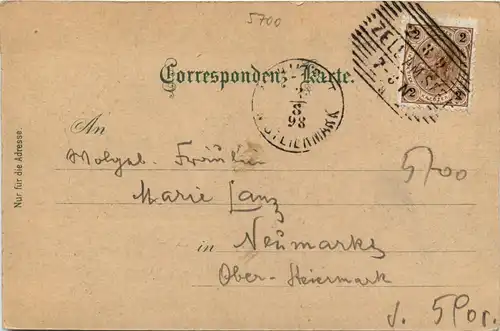 5700
Correspondenz-Karte.
2 2
2 2
ZELL
7-8
3
98
STEIERMARK
An
Nur für die Adresse.
Wolgeb. Fräulein
5700
Marie Lanz
in Neumarkt
Ober-Steiermark